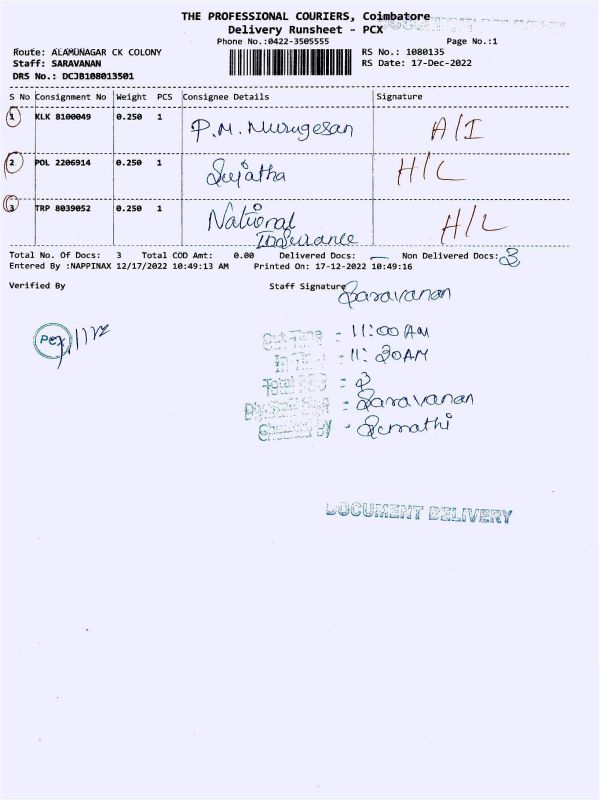 THE PROFESSIONAL COURIERS, Coimbatore
Delivery Runsheet - PCX
Phone No.:0422-3505555 Page No.:1
Route: ALAMUNAGAR CK COLONY RS No.: 1080135
Staff: SARAVANAN RS Date: 17-Dec-2022
DRS No.: DCJB108013501
S No Consignment No Weight PCS Consignee Details Signature
1 KLK 8100049 0.250 1 P.M. Murugesan A/I
2 POL 2206914 0.250 1 Sujatha H/L
3 TRP 8039052 0.250 1 National H/L
Insurance
Total No. Of Docs: 3 Total COD Amt: 0.00 Delivered Docs: — Non Delivered Docs: 3
Entered By :NAPPINAX 12/17/2022 10:49:13 AM Printed On: 17-12-2022 10:49:16
Verified By Staff Signature Saravanan
PCX
Out Time : 11:00 AM
In Time : 11:20 AM
Total : 3
: Saravanan
Checked By : Sumathi
DOCUMENT DELIVERY